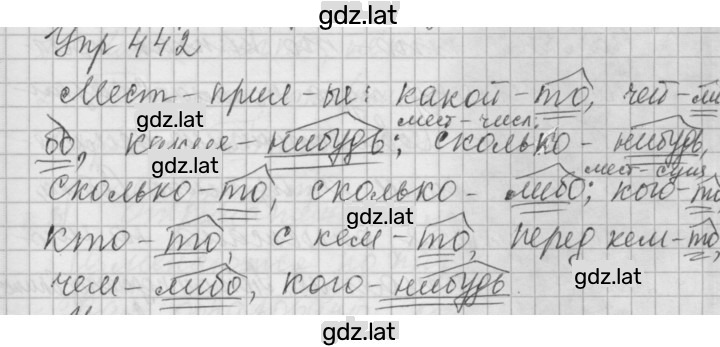 gdz.lat
Упр 442
Мест-прил-ые: какой-то, чей-ли
gdz.lat
мест-числ.
бо, какое-нибудь; сколько-нибудь,
gdz.lat
мест-сущ
сколько-то, сколько-либо; кого-то
gdz.lat
кто-то, с кем-то, перед кем-то,
gdz.lat
чем-либо, кого-нибудь.
gdz.lat